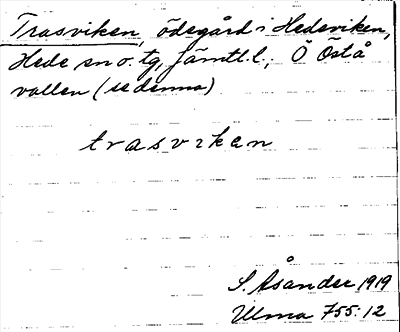 Trasviken, ödegård i Hedeviken,
Hede sn o. tg, Jämtl. l.; Ö Östå
vallen (se denna)
trasvikan
S. Åsander 1919
Ulma 755:12